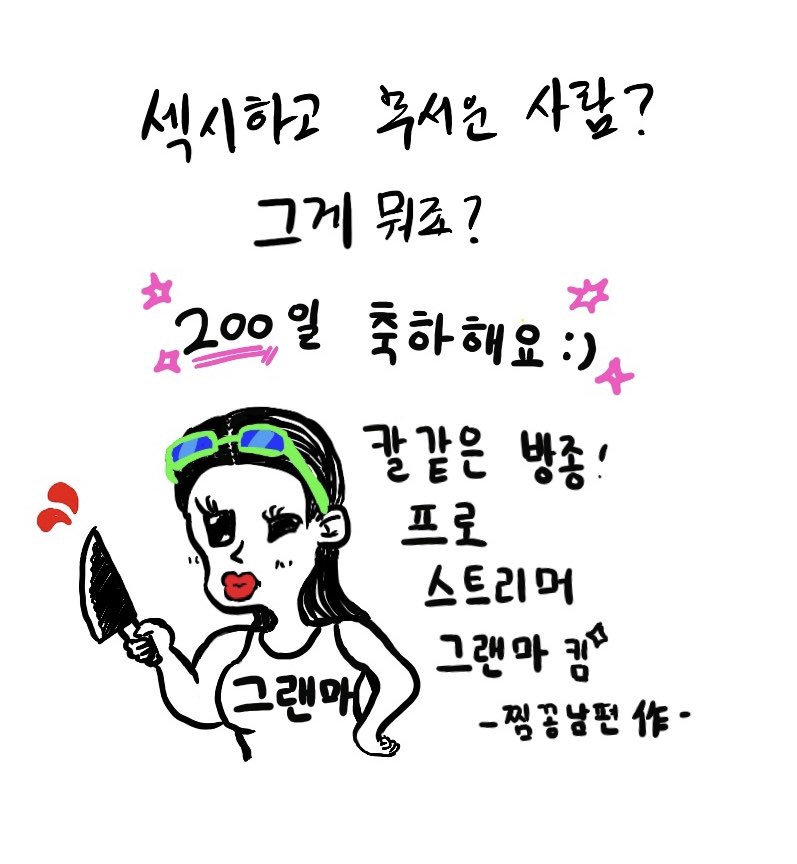 섹시하고 무서운 사람?
그게 뭐죠?
200일 축하해요 :)
칼같은 방종!
프로
스트리머
그랜마 킴
그랜마
-찜꽁남편 作-